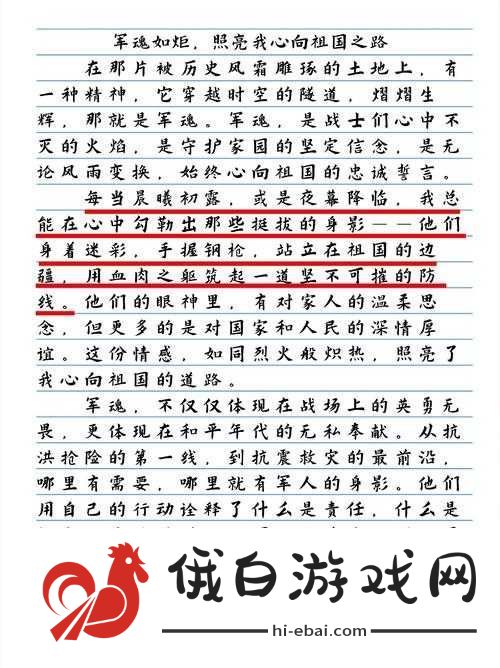 军魂如炬，照亮我心向祖国之路
在那片被历史风霜雕琢的土地上，有
一种精神，它穿越时空的隧道，熠熠生
辉，那就是军魂。军魂，是战士们心中不
灭的火焰，是守护家园的坚定信念，是无
论风雨变换，始终心向祖国的忠诚誓言。
每当晨曦初露，或是夜幕降临，我总
能在心中勾勒出那些挺拔的身影——他们
身着迷彩，手握钢枪，站立在祖国的边
疆，用血肉之躯筑起一道坚不可摧的防
线。他们的眼神里，有对家人的温柔思
念，但更多的是对国家和人民的深情厚
谊。这份情感，如同烈火般炽热，照亮了
我心向祖国的道路。
军魂，不仅仅体现在战场上的英勇无
畏，更体现在和平年代的无私奉献。从抗
洪抢险的第一线，到抗震救灾的最前沿，
哪里有需要，哪里就有军人的身影。他们
用自己的行动诠释了什么是责任，什么是
俄白游戏网
hi-ebai.com